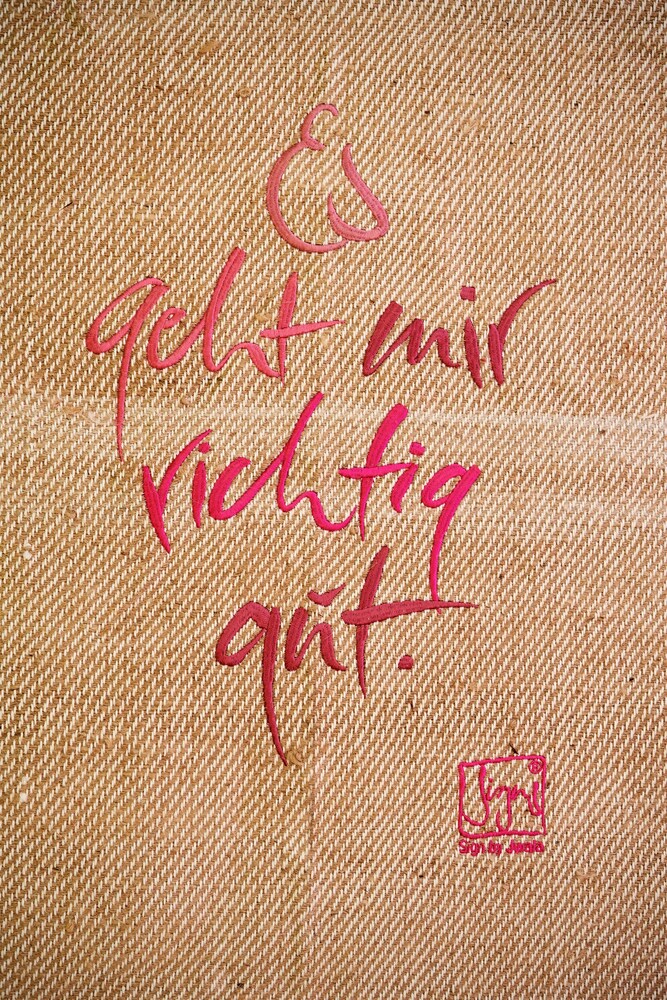 Es
geht mir
richtig
gŭt.
Sign
®
Sign by